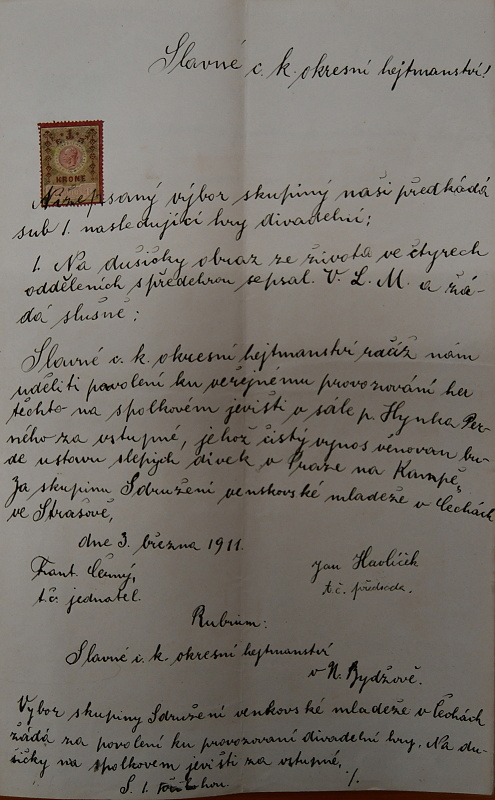 Slavné c. k. okresní hejtmanství!
1
KRONE
Níže psaný výbor skupiny naši předkádá
sub 1. nasledující hry divadelní;
1. Na dušičky obraz ze života ve čtyrech
odděleních s předehrou sepsal. V. L. M. a žá-
dá slušně:
Slavné c. k. okresní hejtmanství račiž nám
uděliti povolení ku veřejnému provozování her
těchto na spolkovém jevišti v sále p. Hynka Per-
ného za vstupné, jehož čistý vynos věnovan bu-
de ustavu slepých dívek v Praze na Kampě,
Za skupinu Sdružení venskovské mladeže v Čechách
ve Strašově,
dne 3. března 1911.
Frant. Černý,
Jan Havlíček
t.č. jednatel.
t.č. předseda.
Rubrum:
Slavné c. k. okresní hejtmanství
v N. Bydžově.
Vybor skupiny Sdružení venkovské mladeže v Čechách
žádá za povolení ku provozovaní divadelní hry. Na du-
šičky na spolkovem jevišti za vstupné,
S. 1. ./.